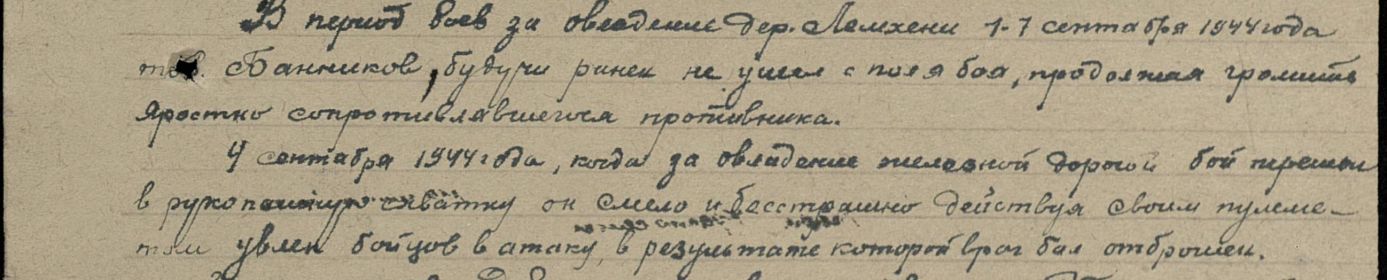 В период боев за овладение дер. Лемхени 1-7 сентября 1944 года
тов. Банников, будучи ранен не ушел с поля боя, продолжая громить
яростно сопротивлявшегося противника.
4 сентября 1944 года, когда за овладение железной дорогой бой перешел
в рукопашную схватку он смело и бесстрашно действуя своим пулеме-
том увлек бойцов в атаку, в результате которой враг был отброшен.